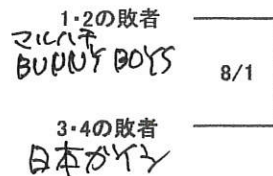 1・2の敗者
マルハチ
BUNNY BOYS
8/1
3・4の敗者
日本ガイシ